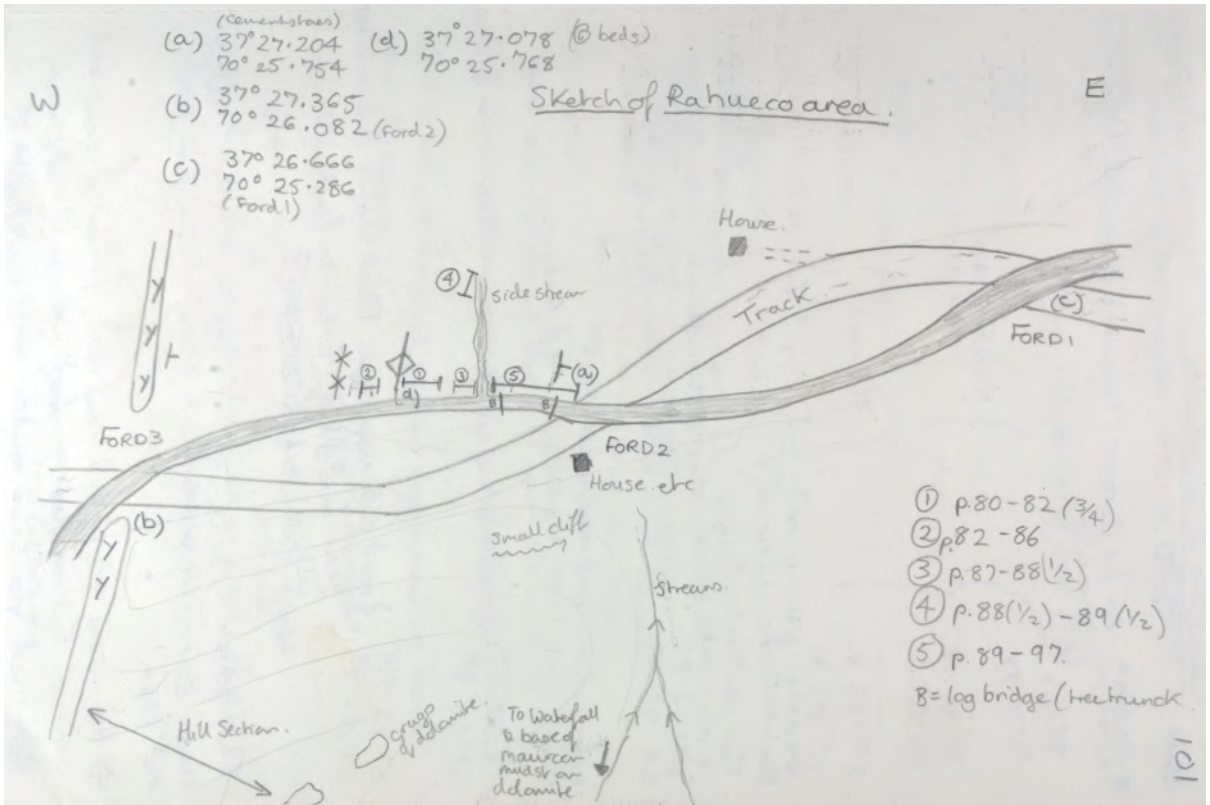 (Cementstones)
(a) 37° 27.204
70° 25.754
(d) 37° 27.078 (6 beds)
70° 25.768
(b) 37° 27.365
70° 26.082 (Ford 2)
(c) 37° 26.666
70° 25.286
(Ford 1)
W
E
Sketch of Rahueco area.
House.
Track
(c)
FORD1
④
side stream
②
①
③
⑤
(a)
(d)
B
B
Y
Y
Y
FORD3
FORD2
House etc
(b)
Y
Y
small cliff
Streams.
Hill Section.
crags
of dolomite.
To Waterfall
& base of
mudst on
dolomite
① p.80-82 (3/4)
② p82-86
③ p.87-88 (1/2)
④ p.88(1/2) - 89 (1/2)
⑤ p.89-97.
B = log bridge (treetrunck
101